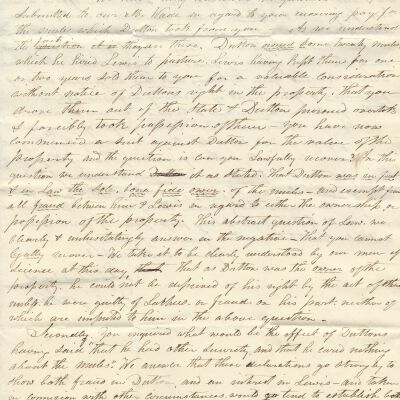 submitted to our Mr. Wade in regard to your recovering pay for
the mules which Dutton took from you - As we understand
the facts question it is thus in these. Dutton owned some twenty mules
which he hired Lewis to pasture. Lewis having kept them for one
or two years sold them to you for a valuable consideration
without notice of Duttons right in the property, that you
drove them out of the State & Dutton pursued overtook
& forcibly took possession of them - you have now
commenced a suit against Dutton for the value of the
property and the question is can you Lawfully recover? In this
question we understand Dutton it as stated. That Dutton was in fact
& in Law the sole, bona fide owner, of the mules - and exempt from
all fraud between him & Lewis in regard to either the ownership or
possession of the property. This abstract question of Law. we
clearly & unhesitatingly answer in the negative - that you cannot
legally recover - We take it to be clearly understood by our men of
science at this day, that as Dutton was the owner of the
property he could not be deprived of his right by the act of others
unless he were guilty of Lashes or fraud on his part neither of
which are imputed to him in the above question.
Secondly You inquired what would be the effect of Duttons
having said "that he had other security and that he cared nothing
about the mules." We answer that these declarations go strongly to
show both fraud in Dutton, and an interest in Lewis - and taken
in connexion with other circumstances would go tend to establish both